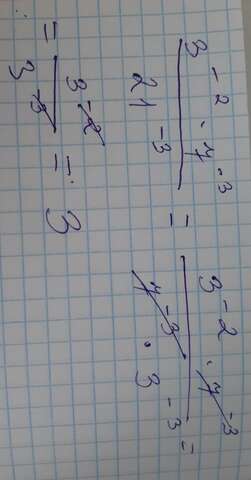 3⁻² · 7⁻³ / 21⁻³ = 3⁻² · 7⁻³ / 7⁻³ · 3⁻³ =
= 3⁻² / 3⁻³ = 3